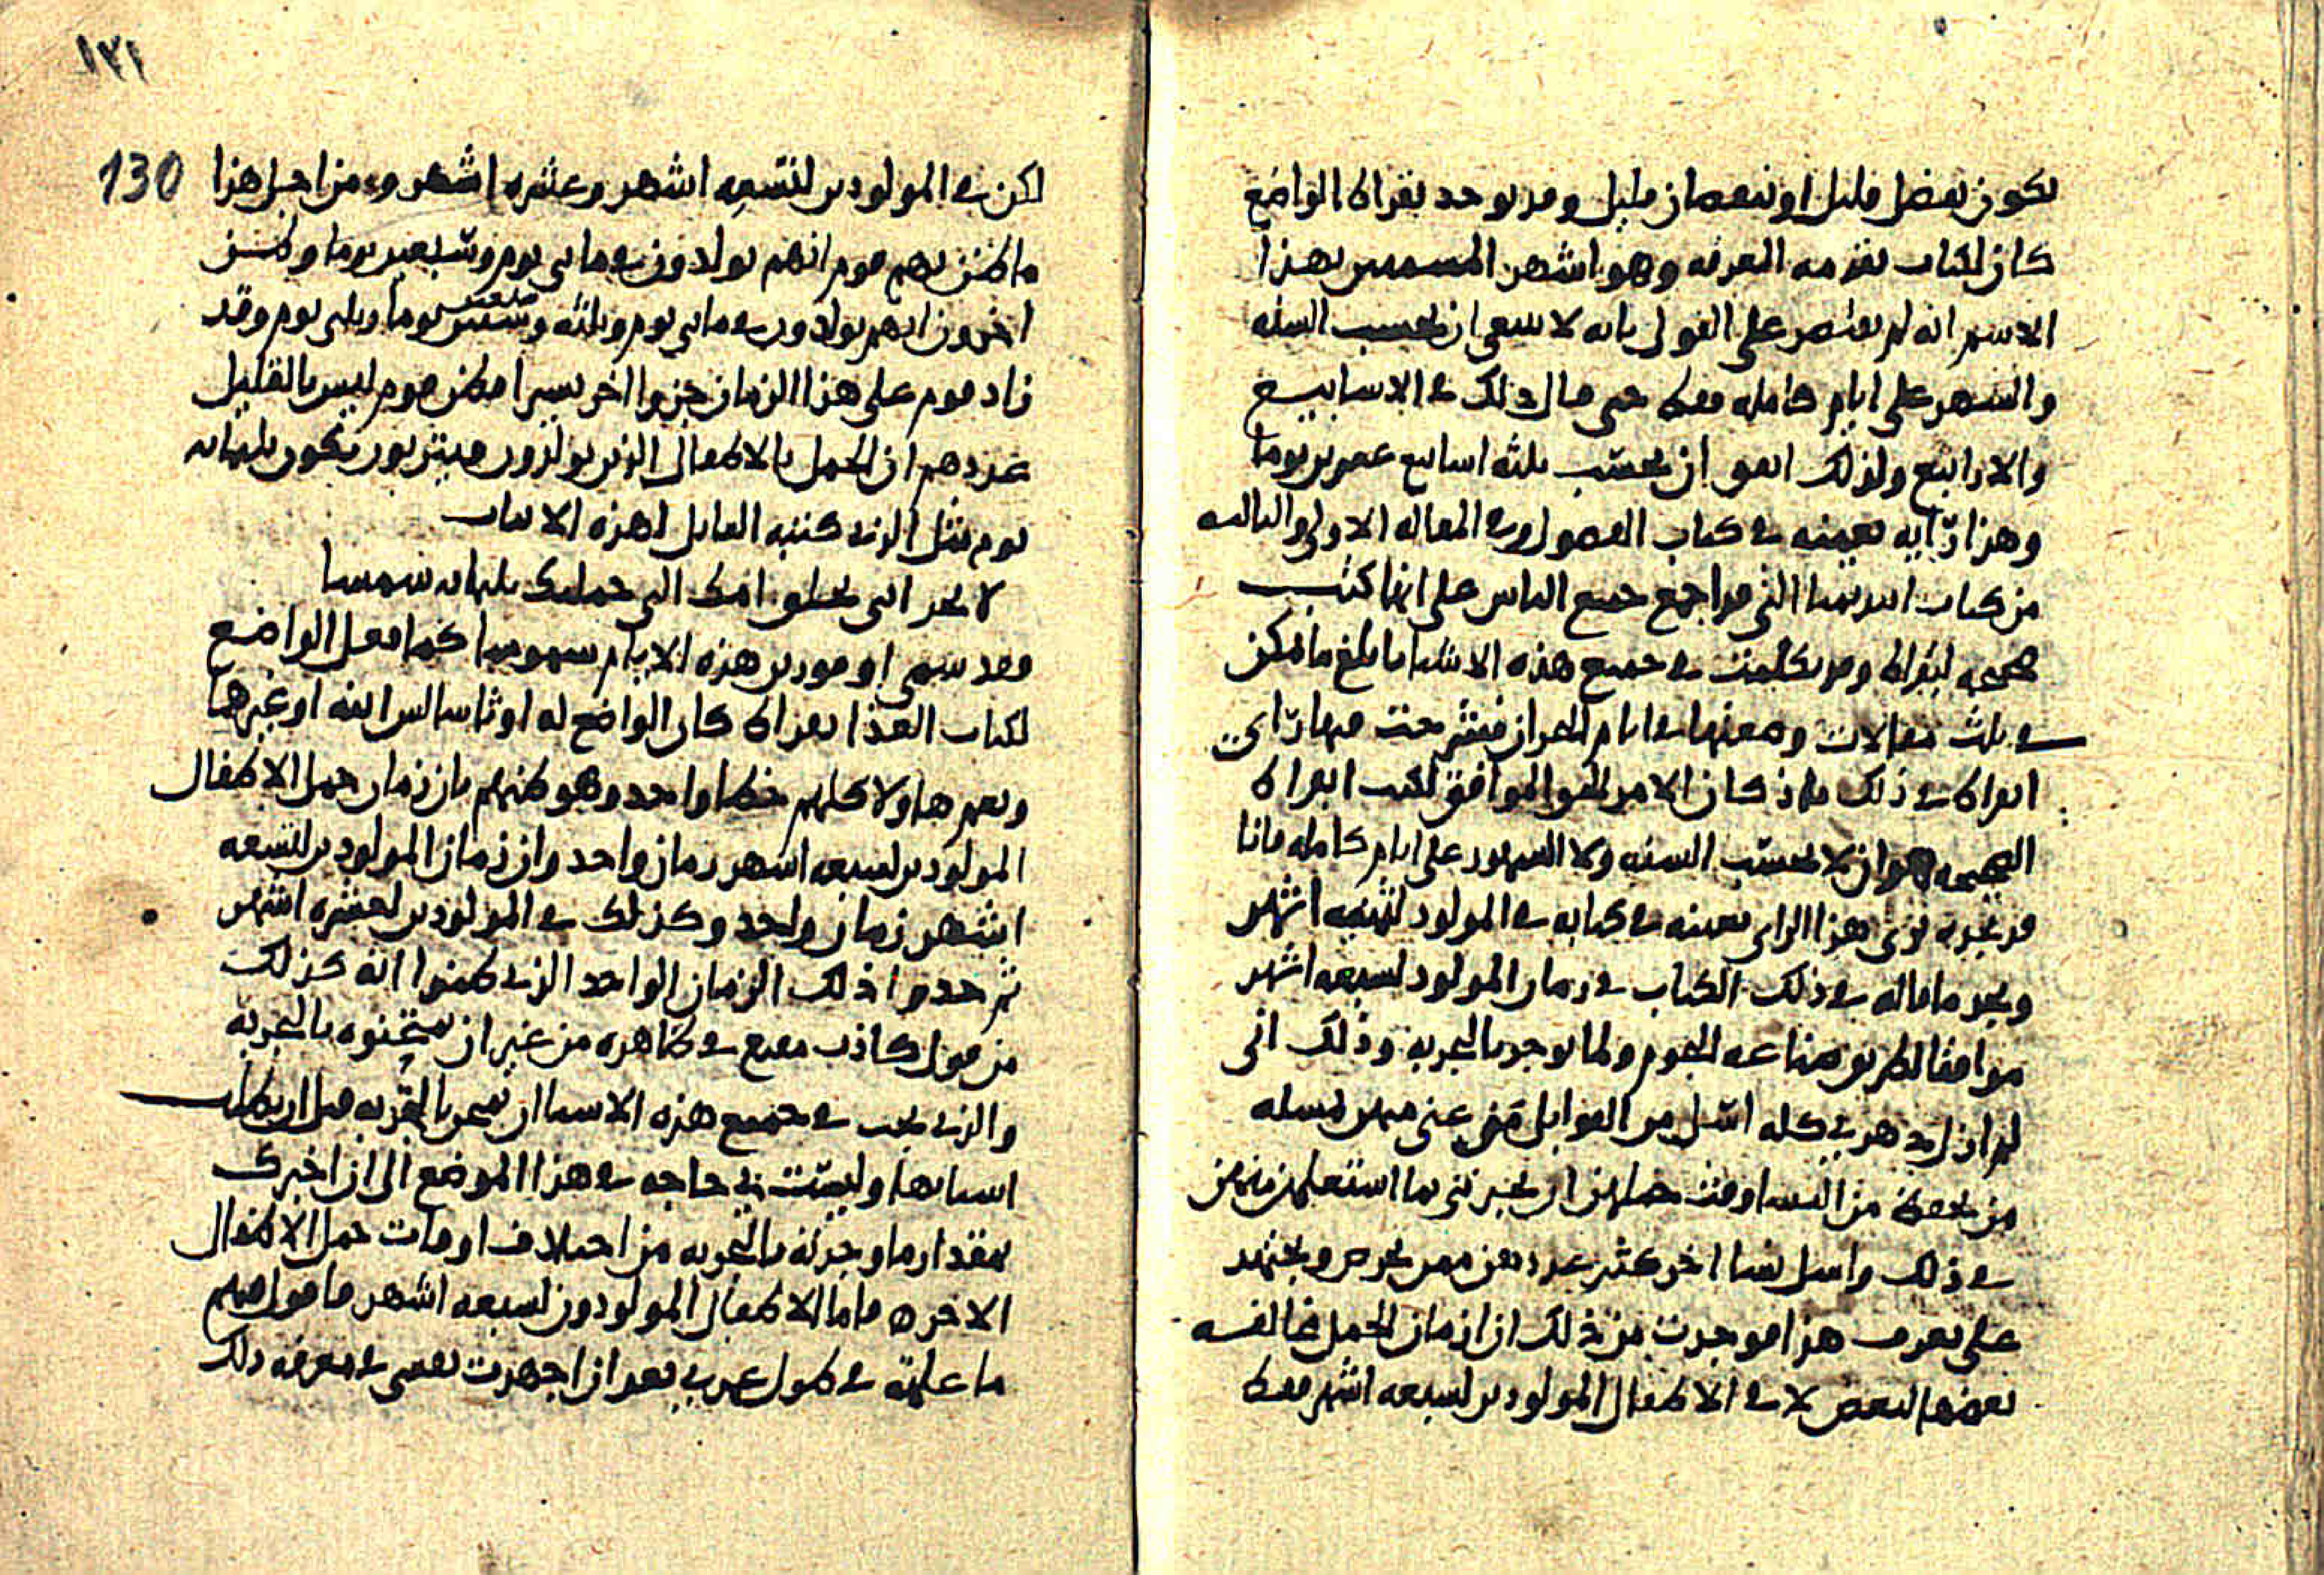 يكون بفضل قليل او نقصان قليل وقد يوجد بقراط الواضع
كان لكتاب تقدمه المعرفه وهو اشهر المسمين بهذا
الاسم انه لم يقتصر على القول بانه لا ينبغي ان تحسب السنه
والشهر على ايام كامله فقط حتى قال ذلك في الاسابيع
والارابيع ولذلك اتفق ان يحتسب ثلثه اسابيع عشرين يوما
وهذا رايه بعينه في كتاب الفصول وفي المقاله الاولى والثالثه
من كتاب ابيديميا التي قد اجمع جميع الناس على انها كتب
صحيحه لبقراط وقد تكلمت في جميع هذه الاشيا بابلغ ما يمكن
في ثلث مقالات وضعتها في ايام البحران فشرحت فيها راي
ابقراط في ذلك فاذ كان الامر الحق الموافق لكتب ابقراط
الصحيحه هو ان لا يحتسب السنه ولا الشهور على ايام كامله فانا
قد نجده يرى هذا الراي بعينه في كتابه في المولود لثمنيه اشهر
ونجد ما قاله في ذلك الكتاب في زمان المولود لسبعه اشهر
موافقا لطريق صناعه النجوم ولما يوجد بالتجربه وذلك اني
لم ازل دهري كله اسل من القوابل من عني منهن لمسله
من يحفظ من النسا وقت حملهن ان يخبرنني بما استعلمن منهن
في ذلك واسل نسا اخر كثير عددهن ممن يحرص ويجتهد
على تعرف هذا فوجدت من ذلك ان ازمان الحمل مخالفه
بعضها لبعض لا في الاطفال المولودين لسبعه اشهر فقط
١٣١
130
لكن في المولودين لتسعه اشهر وعشره اشهر ومن اجل هذا
ما ظن بهم قوم انهم يولدون في مايتي يوم وسبعين يوما وظن
اخرون انهم يولدون في مايتي يوم وثلثه وسبعين يوما وثلثي يوم وقد
زاد قوم على هذا الزمان جزوا اخر يسيرا فظن قوم ليس بالقليل
عددهم ان الحمل بالاطفال الذين يولدون حينئذ يكون ثلثمايه
يوم مثل الذي كتبه القايل لهذه الابيات
لا تحزاني تخلق امك التي حملتك ثلثمايه شمسا
وقد سمى اومورس هذه الايام شموسا كما فعل الواضع
لكتاب الغذا بقراط كان الواضع له او ثاسالس ابنه او غيرهما
ويعم هاولا كلهم خطا واحد وهو ظنهم بان زمان حمل الاطفال
المولودين لسبعه اشهر زمان واحد وان زمان المولودين لتسعه
اشهر زمان واحد وكذلك في المولودين لعشره اشهر
ثم حددوا ذلك الزمان الواحد الذي ظنوا انه كذلك
من قول كاذب مقنع في ظاهره من غير ان يمتحنوه بالتجربه
والذي يجب في جميع هذه الاشيا ان يمتحن بالتجربه قبل ان يطلب
اسبابها وليست بي حاجه في هذا الموضع الى ان اخبرك
بمقدار ما وجدته بالتجربه من اختلاف اوقات حمل الاطفال
الاخره فاما الاطفال المولودون لسبعه اشهر فاقول فيهم
ما علمته في طول عمري بعد ان اجهدت نفسي في معرفه ذلك